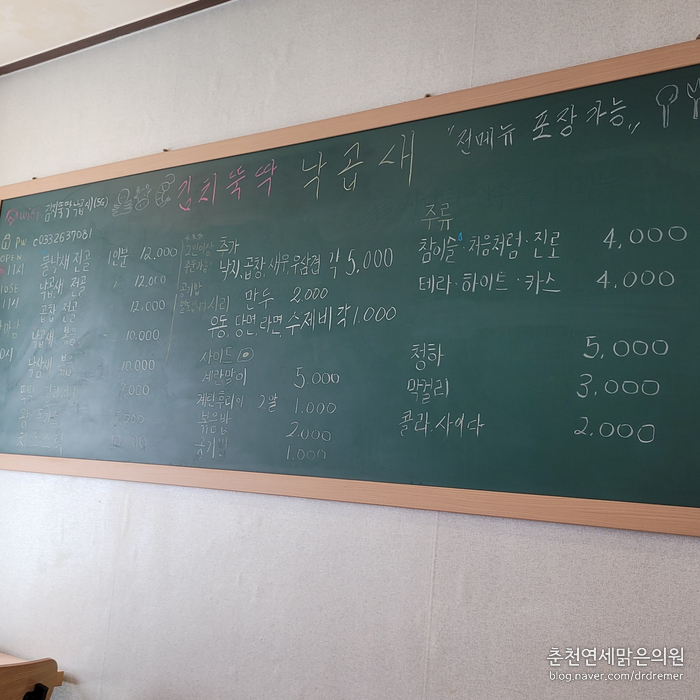 김치뚝딱 낙곱새
"전메뉴 포장 가능"
PW c0332637081
OPEN
11시
불낙새 전골 1인분 12,000
낙곱새 전골 12,000
곱찹 전골 12,000
낙곱새 볶음 10,000
낙삼새 볶음 10,000
추가
낙지,곱창,새우,우삼겹 각 5,000
사리 만두 2,000
우동, 당면, 라면, 수제비 각 1,000
사이드
계란말이 5,000
계란후라이 2알 1,000
볶음밥 2,000
공기밥 1,000
주류
참이슬·처음처럼·진로 4,000
테라·하이트·카스 4,000
청하 5,000
막걸리 3,000
콜라·사이다 2,000
춘천연세맑은의원
blog.naver.com/drdremer